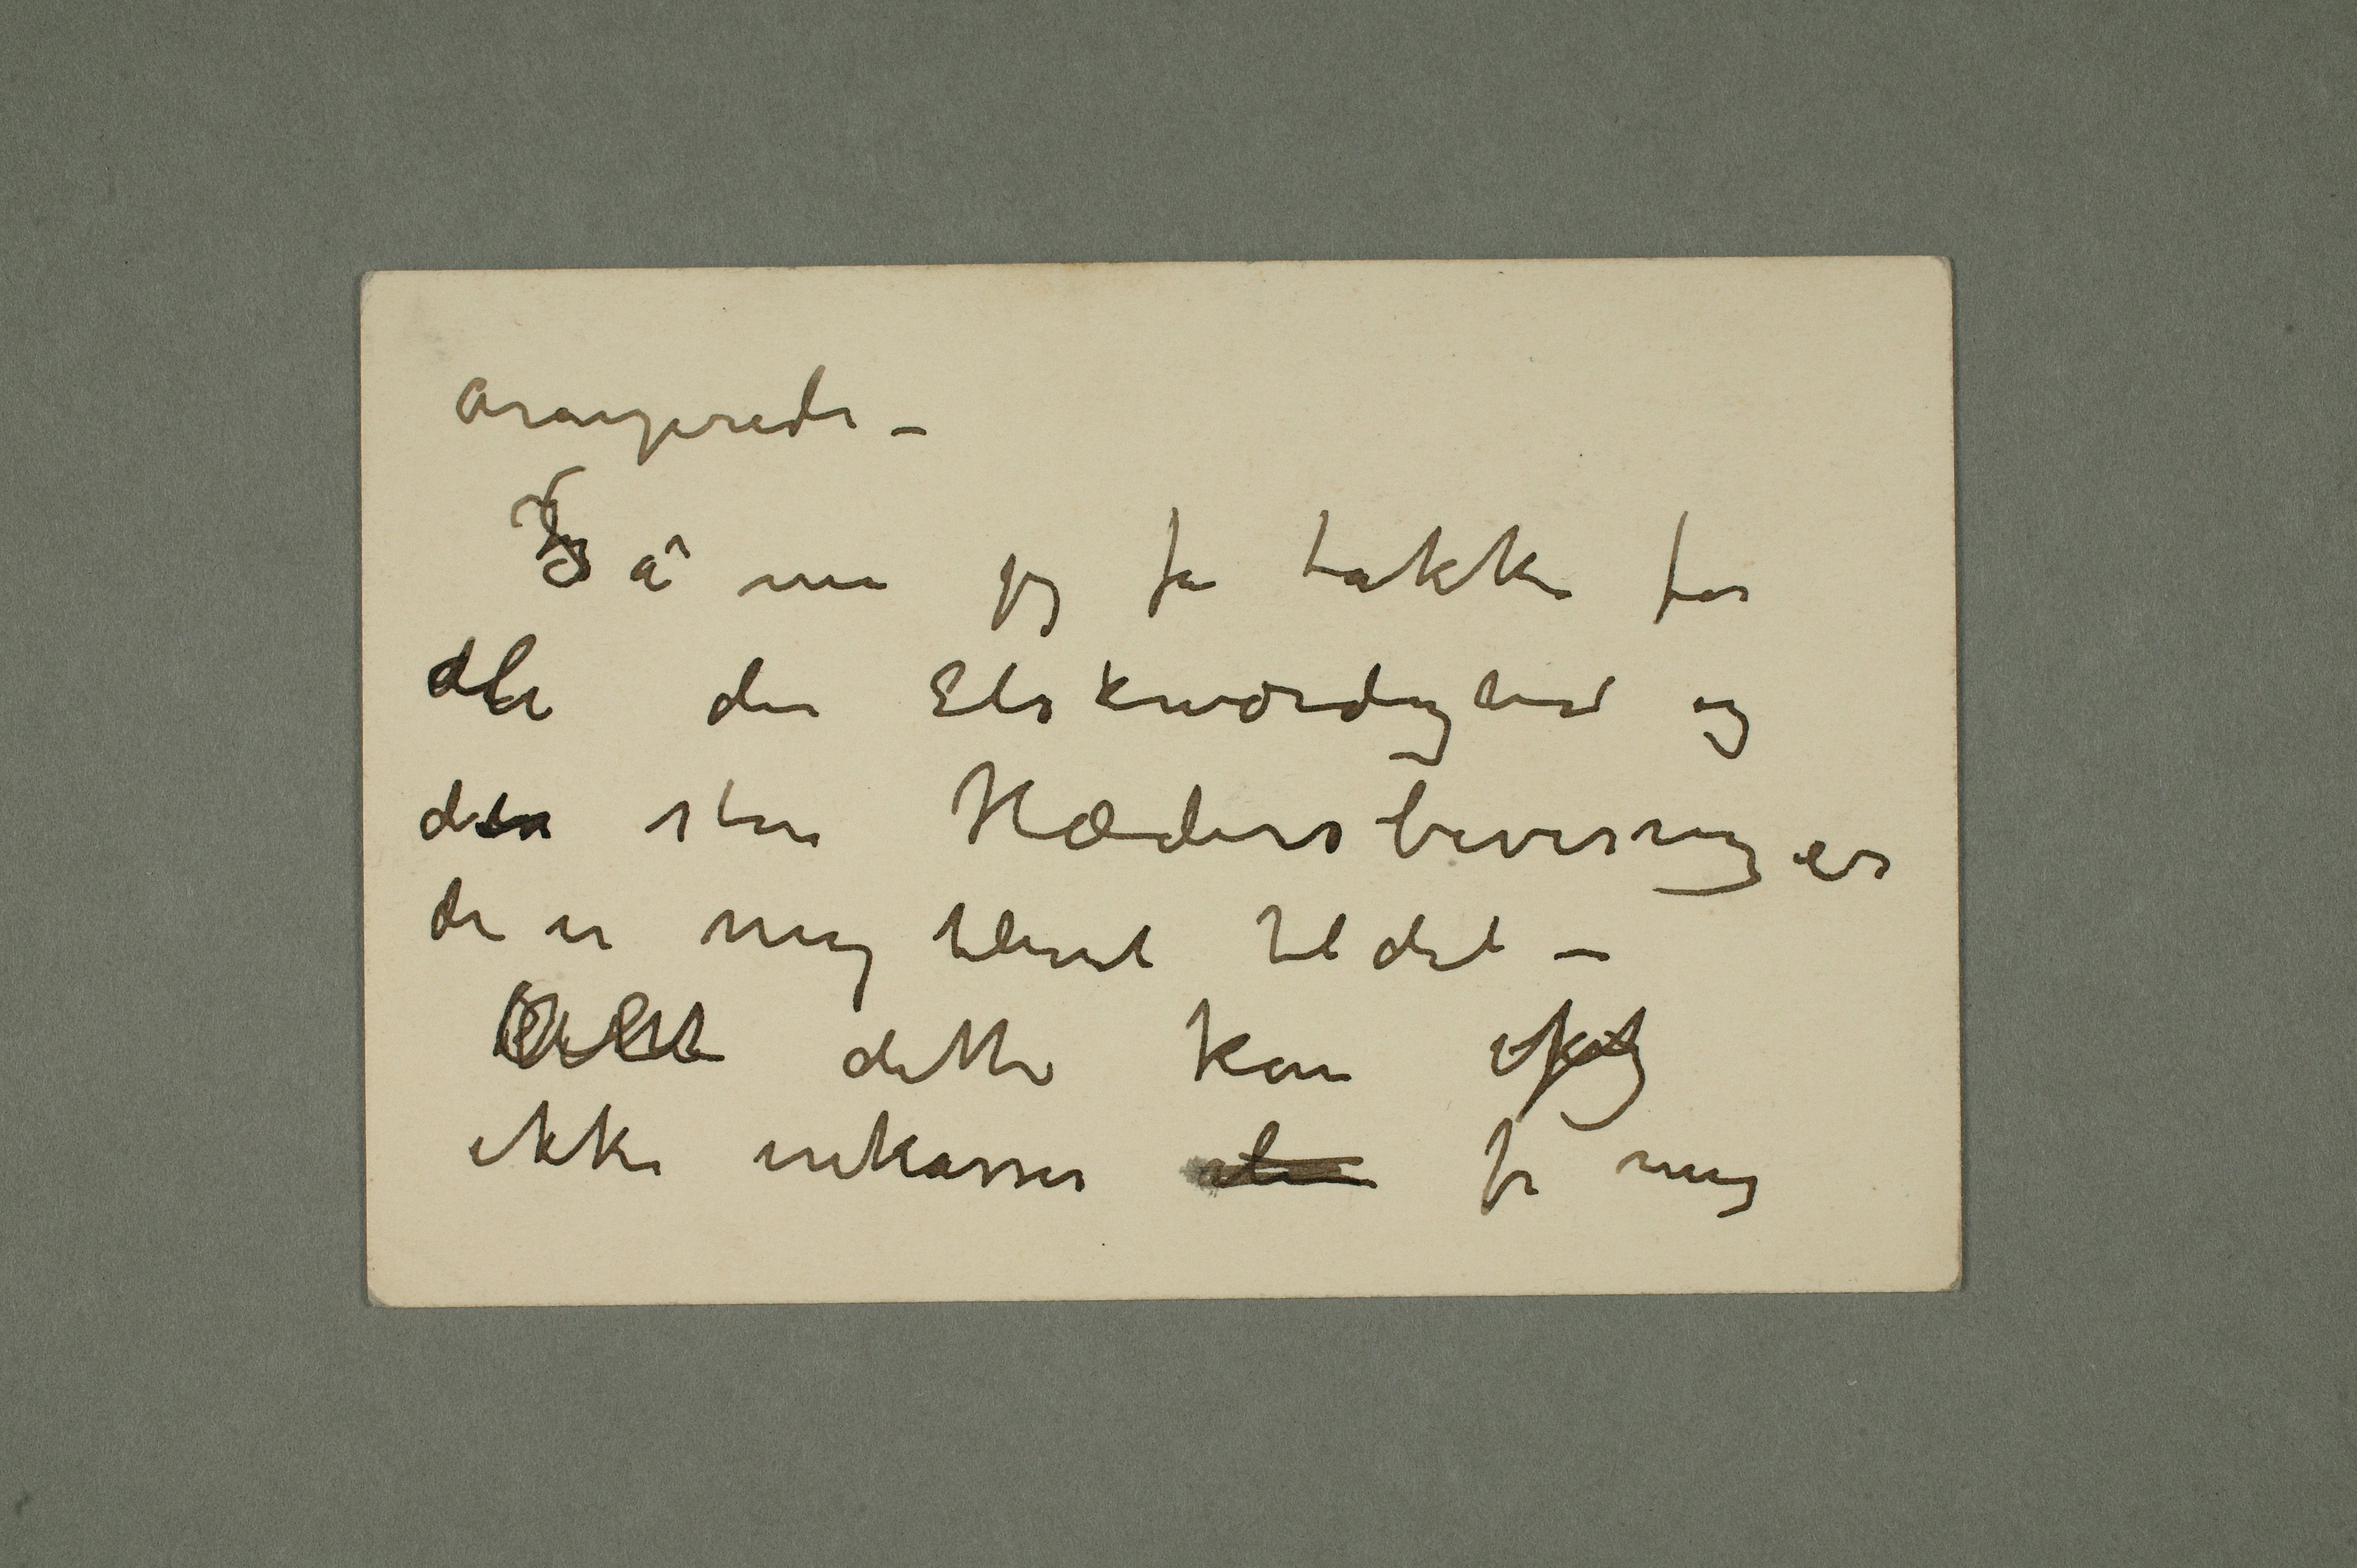 arangerede –
Så må jeg få takke for
alle den Elskværdighed og
den store Hædersbevisninger
der er mig blevet til del –
Alt dette kan
ikke inkassere for mig